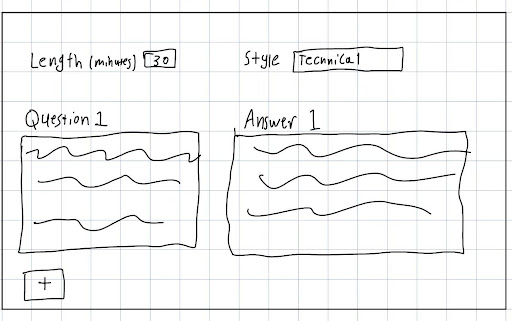 Length (minutes) 30 Style Technical
Question 1 Answer 1
+